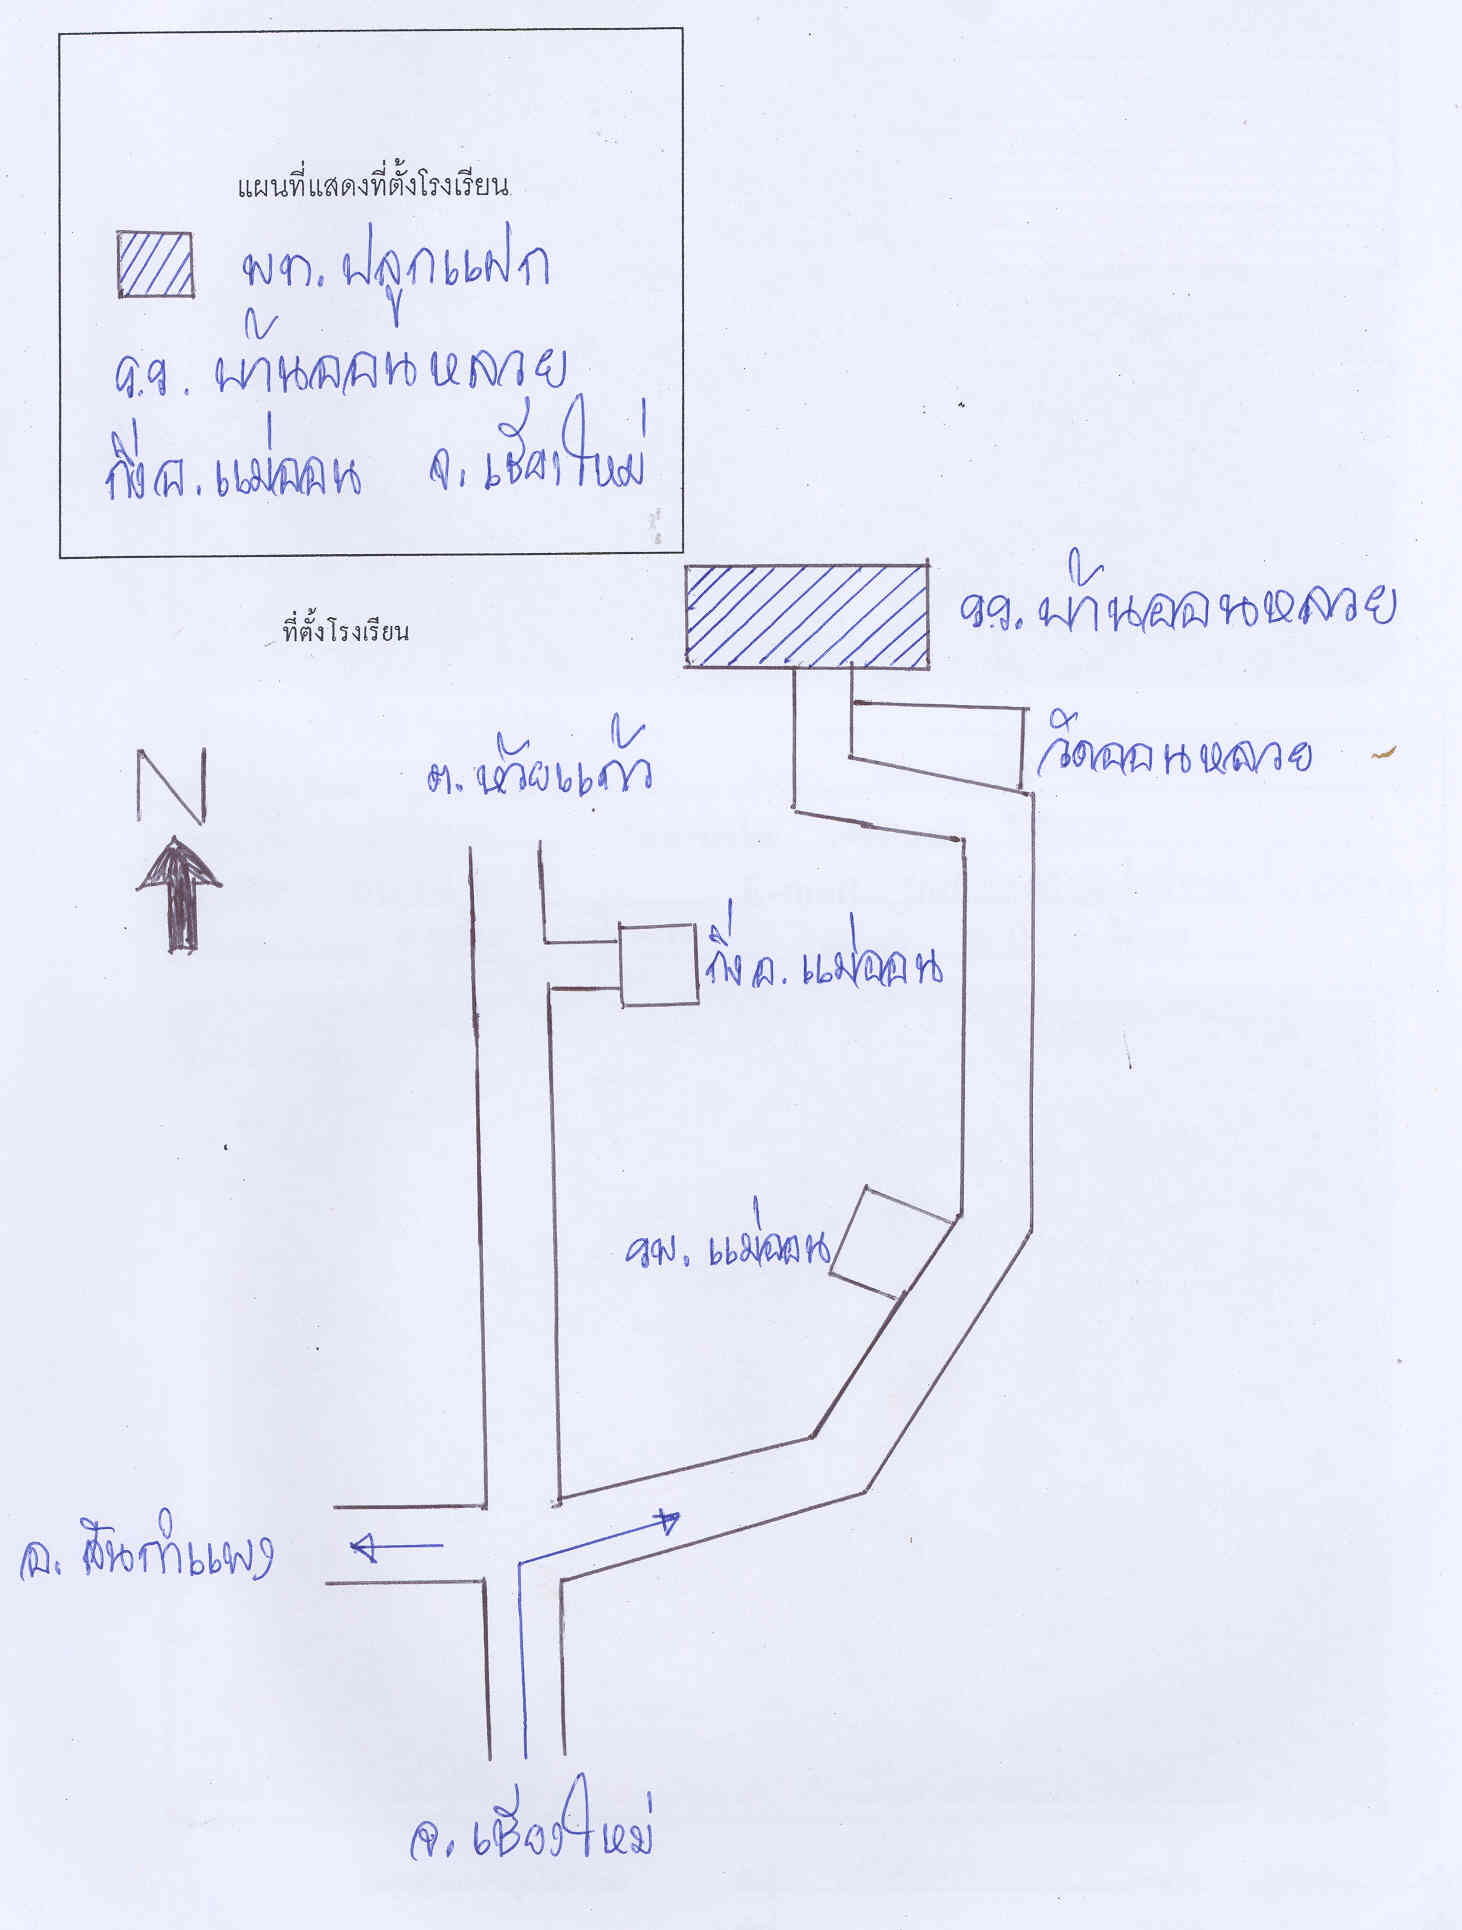 แผนที่แสดงที่ตั้งโรงเรียน
พท. ปลูกแฝก
ร.ร. บ้านออนหลวย
กิ่ง อ. แม่ออน จ. เชียงใหม่
ที่ตั้งโรงเรียน
ร.ร. บ้านออนหลวย
วัดออนหลวย
ต. ห้วยแก้ว
N
กิ่ง อ. แม่ออน
รพ. แม่ออน
อ. สันกำแพง
จ. เชียงใหม่